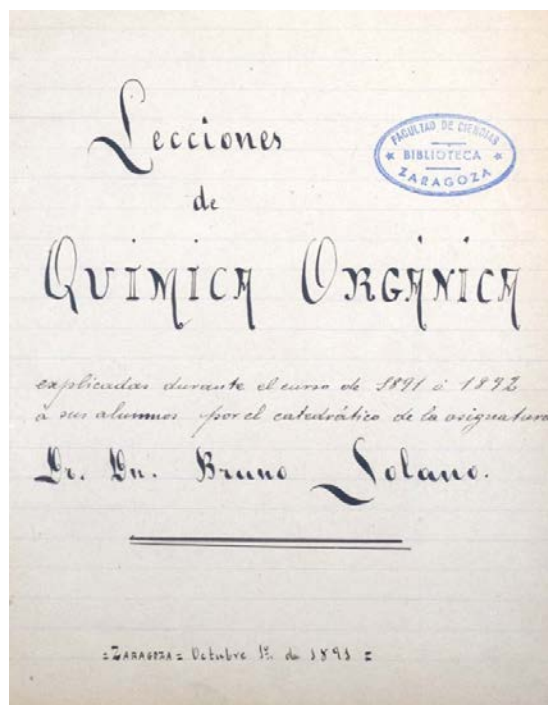 Lecciones
FACULTAD DE CIENCIAS
* BIBLIOTECA *
ZARAGOZA
de
QUÍMICA ORGÁNICA
explicadas durante el curso de 1891 á 1892
á sus alumnos por el catedrático de la asignatura
Dr. Dn. Bruno Solano.
=ZARAGOZA= Octubre 1º. de 1891 =